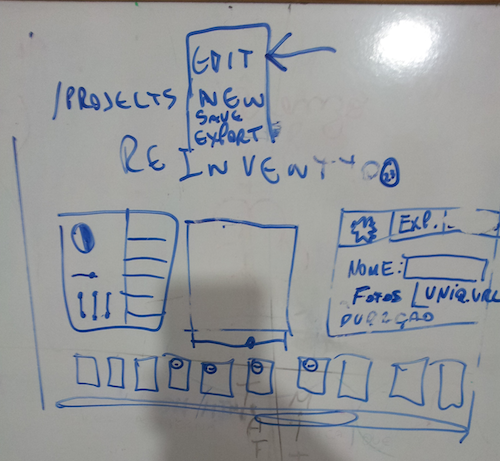 EDIT
/PROJECTS NEW
SAVE
EXPORT
REINVENT
EXP.
NOME:
FOTOS UNIQ.URL
DURAÇÃO